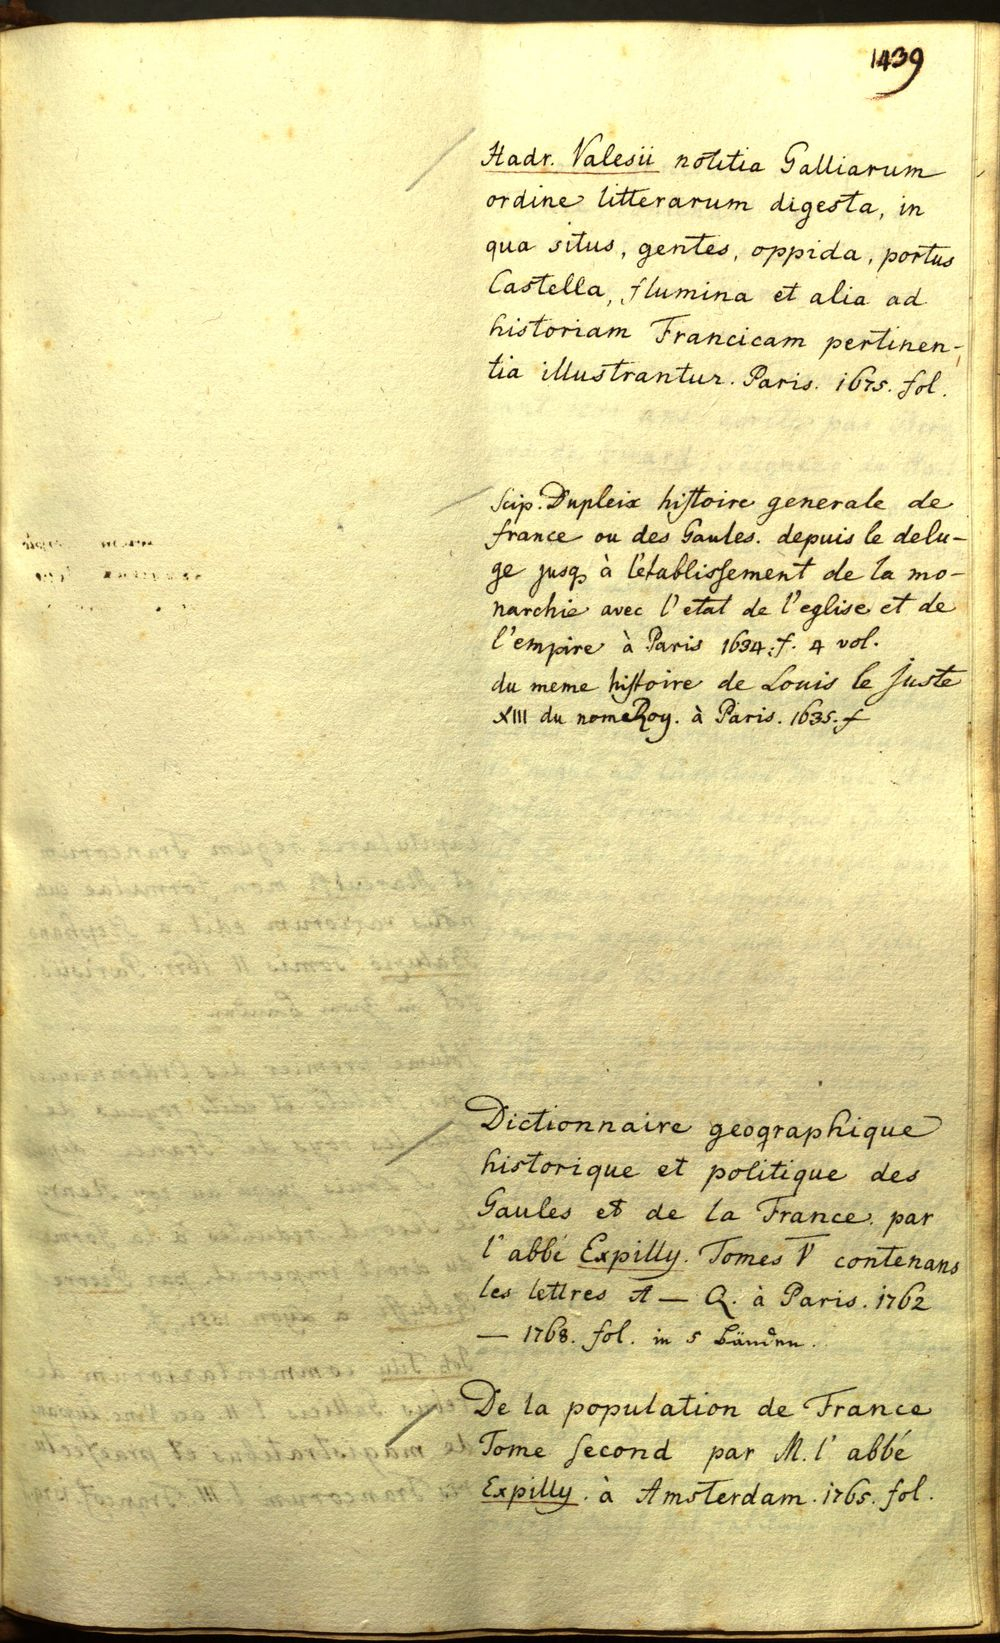 1439
Hadr. Valesii notitia Galliarum
ordine litterarum digesta, in
qua situs, gentes, oppida, portus
Castella, flumina et alia ad
historiam Francicam pertinen-
tia illustrantur. Paris. 1675. fol.
Scip. Dupleix histoire generale de
france ou des Gaules. depuis le delu-
ge jusq à l'etablissement de la mo-
narchie avec l'etat de l'eglise et de
l'empire à Paris 1634. f. 4 vol.
du meme histoire de Louis le Juste
XIII du nome Roy. à Paris. 1635. f
Dictionnaire geographique
historique et politique des
Gaules et de la France. par
l'abbé Expilly. Tomes V contenans
les lettres A — Q. à Paris. 1762
— 1768. fol. in 5 Bänden.
De la population de France
Tome second par M. l'abbé
Expilly. à Amsterdam. 1765. fol.